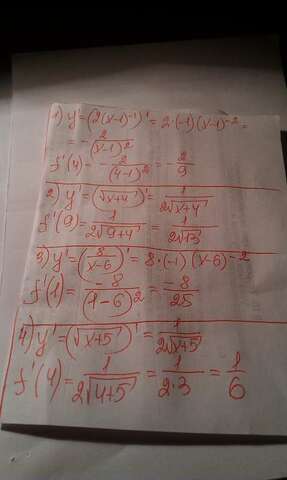 1) y' = (2(x-1)⁻¹)' = 2·(-1)(x-1)⁻² =
= - 2/(x-1)²
f'(4) = - 2/(4-1)² = - 2/9
2) y' = (√(x+4))' = 1/(2√(x+4))
f'(9) = 1/(2√(9+4)) = 1/(2√13)
3) y' = (8/(x-6))' = 8·(-1)(x-6)⁻²
f'(1) = -8/(1-6)² = -8/25
4) y' = (√(x+5))' = 1/(2√(x+5))
f'(4) = 1/(2√(4+5)) = 1/(2·3) = 1/6